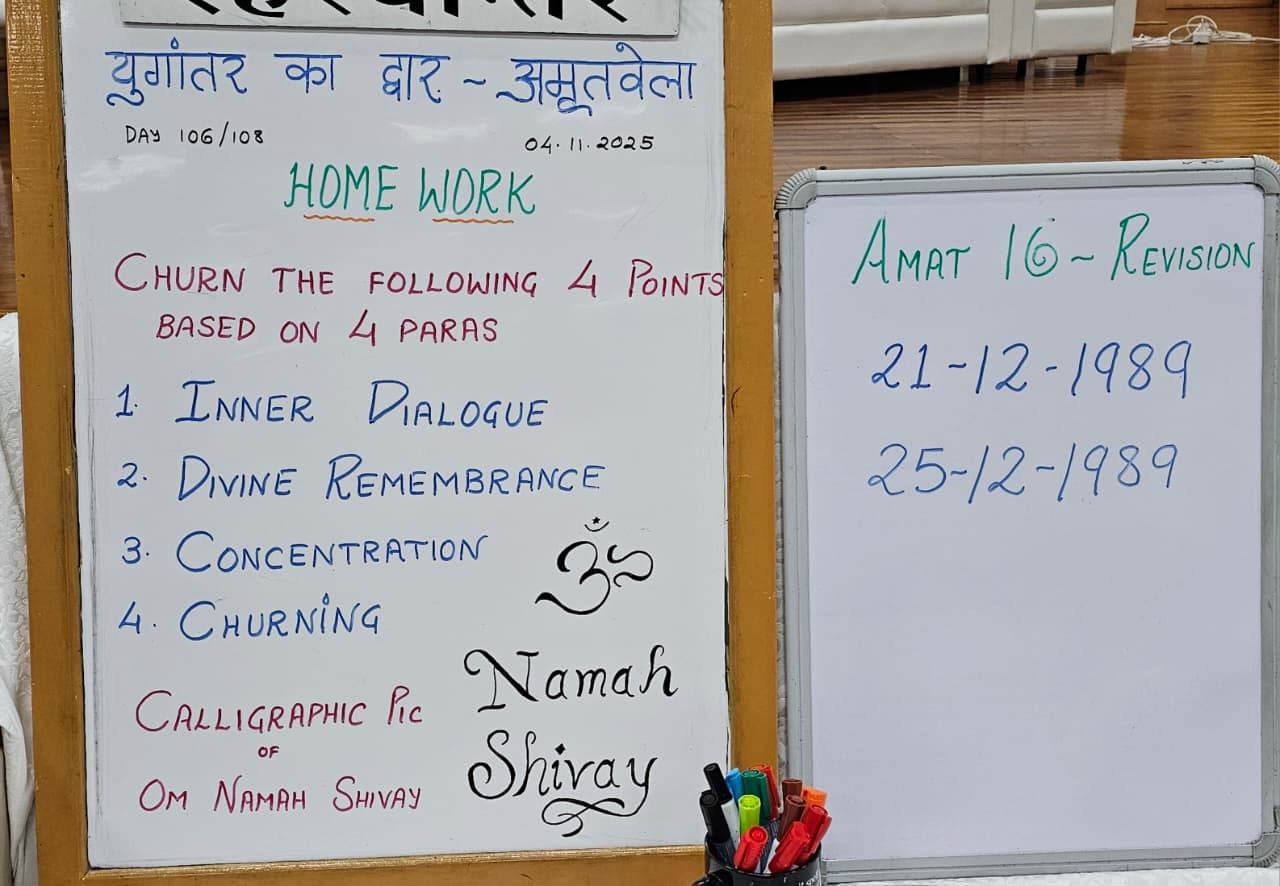 युगांतर का द्वार ~ अमृतवेला
DAY 106/108
04.11.2025
HOME WORK
CHURN THE FOLLOWING 4 POINTS
BASED ON 4 PARAS
1. INNER DIALOGUE
2. DIVINE REMEMBRANCE
3. CONCENTRATION
4. CHURNING
ॐ
Namah
Shivay
CALLIGRAPHIC PIC
OF
OM NAMAH SHIVAY
AMAT 16 ~ REVISION
21-12-1989
25-12-1989